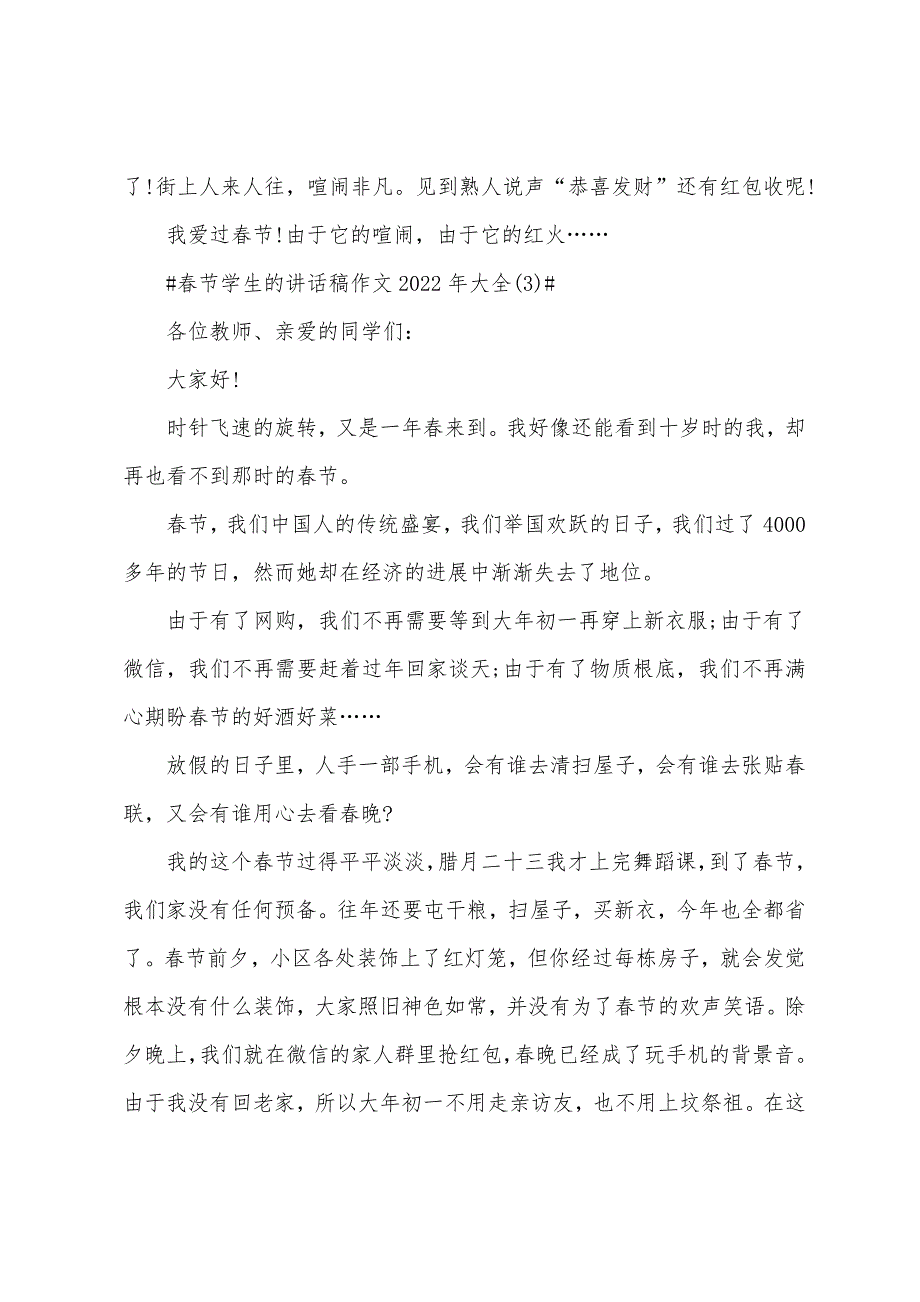 了!街上人来人往，喧闹非凡。见到熟人说声“恭喜发财”还有红包收呢!
我爱过春节!由于它的喧闹，由于它的红火……
#春节学生的讲话稿作文2022年大全(3)#
各位教师、亲爱的同学们：
大家好!
时针飞速的旋转，又是一年春来到。我好像还能看到十岁时的我，却
再也看不到那时的春节。
春节，我们中国人的传统盛宴，我们举国欢跃的日子，我们过了4000
多年的节日，然而她却在经济的进展中渐渐失去了地位。
由于有了网购，我们不再需要等到大年初一再穿上新衣服;由于有了
微信，我们不再需要赶着过年回家谈天;由于有了物质根底，我们不再满
心期盼春节的好酒好菜……
放假的日子里，人手一部手机，会有谁去清扫屋子，会有谁去张贴春
联，又会有谁用心去看春晚?
我的这个春节过得平平淡淡，腊月二十三我才上完舞蹈课，到了春节，
我们家没有任何预备。往年还要屯干粮，扫屋子，买新衣，今年也全都省
了。春节前夕，小区各处装饰上了红灯笼，但你经过每栋房子，就会发觉
根本没有什么装饰，大家照旧神色如常，并没有为了春节的欢声笑语。除
夕晚上，我们就在微信的家人群里抢红包，春晚已经成了玩手机的背景音。
由于我没有回老家，所以大年初一不用走亲访友，也不用上坟祭祖。在这